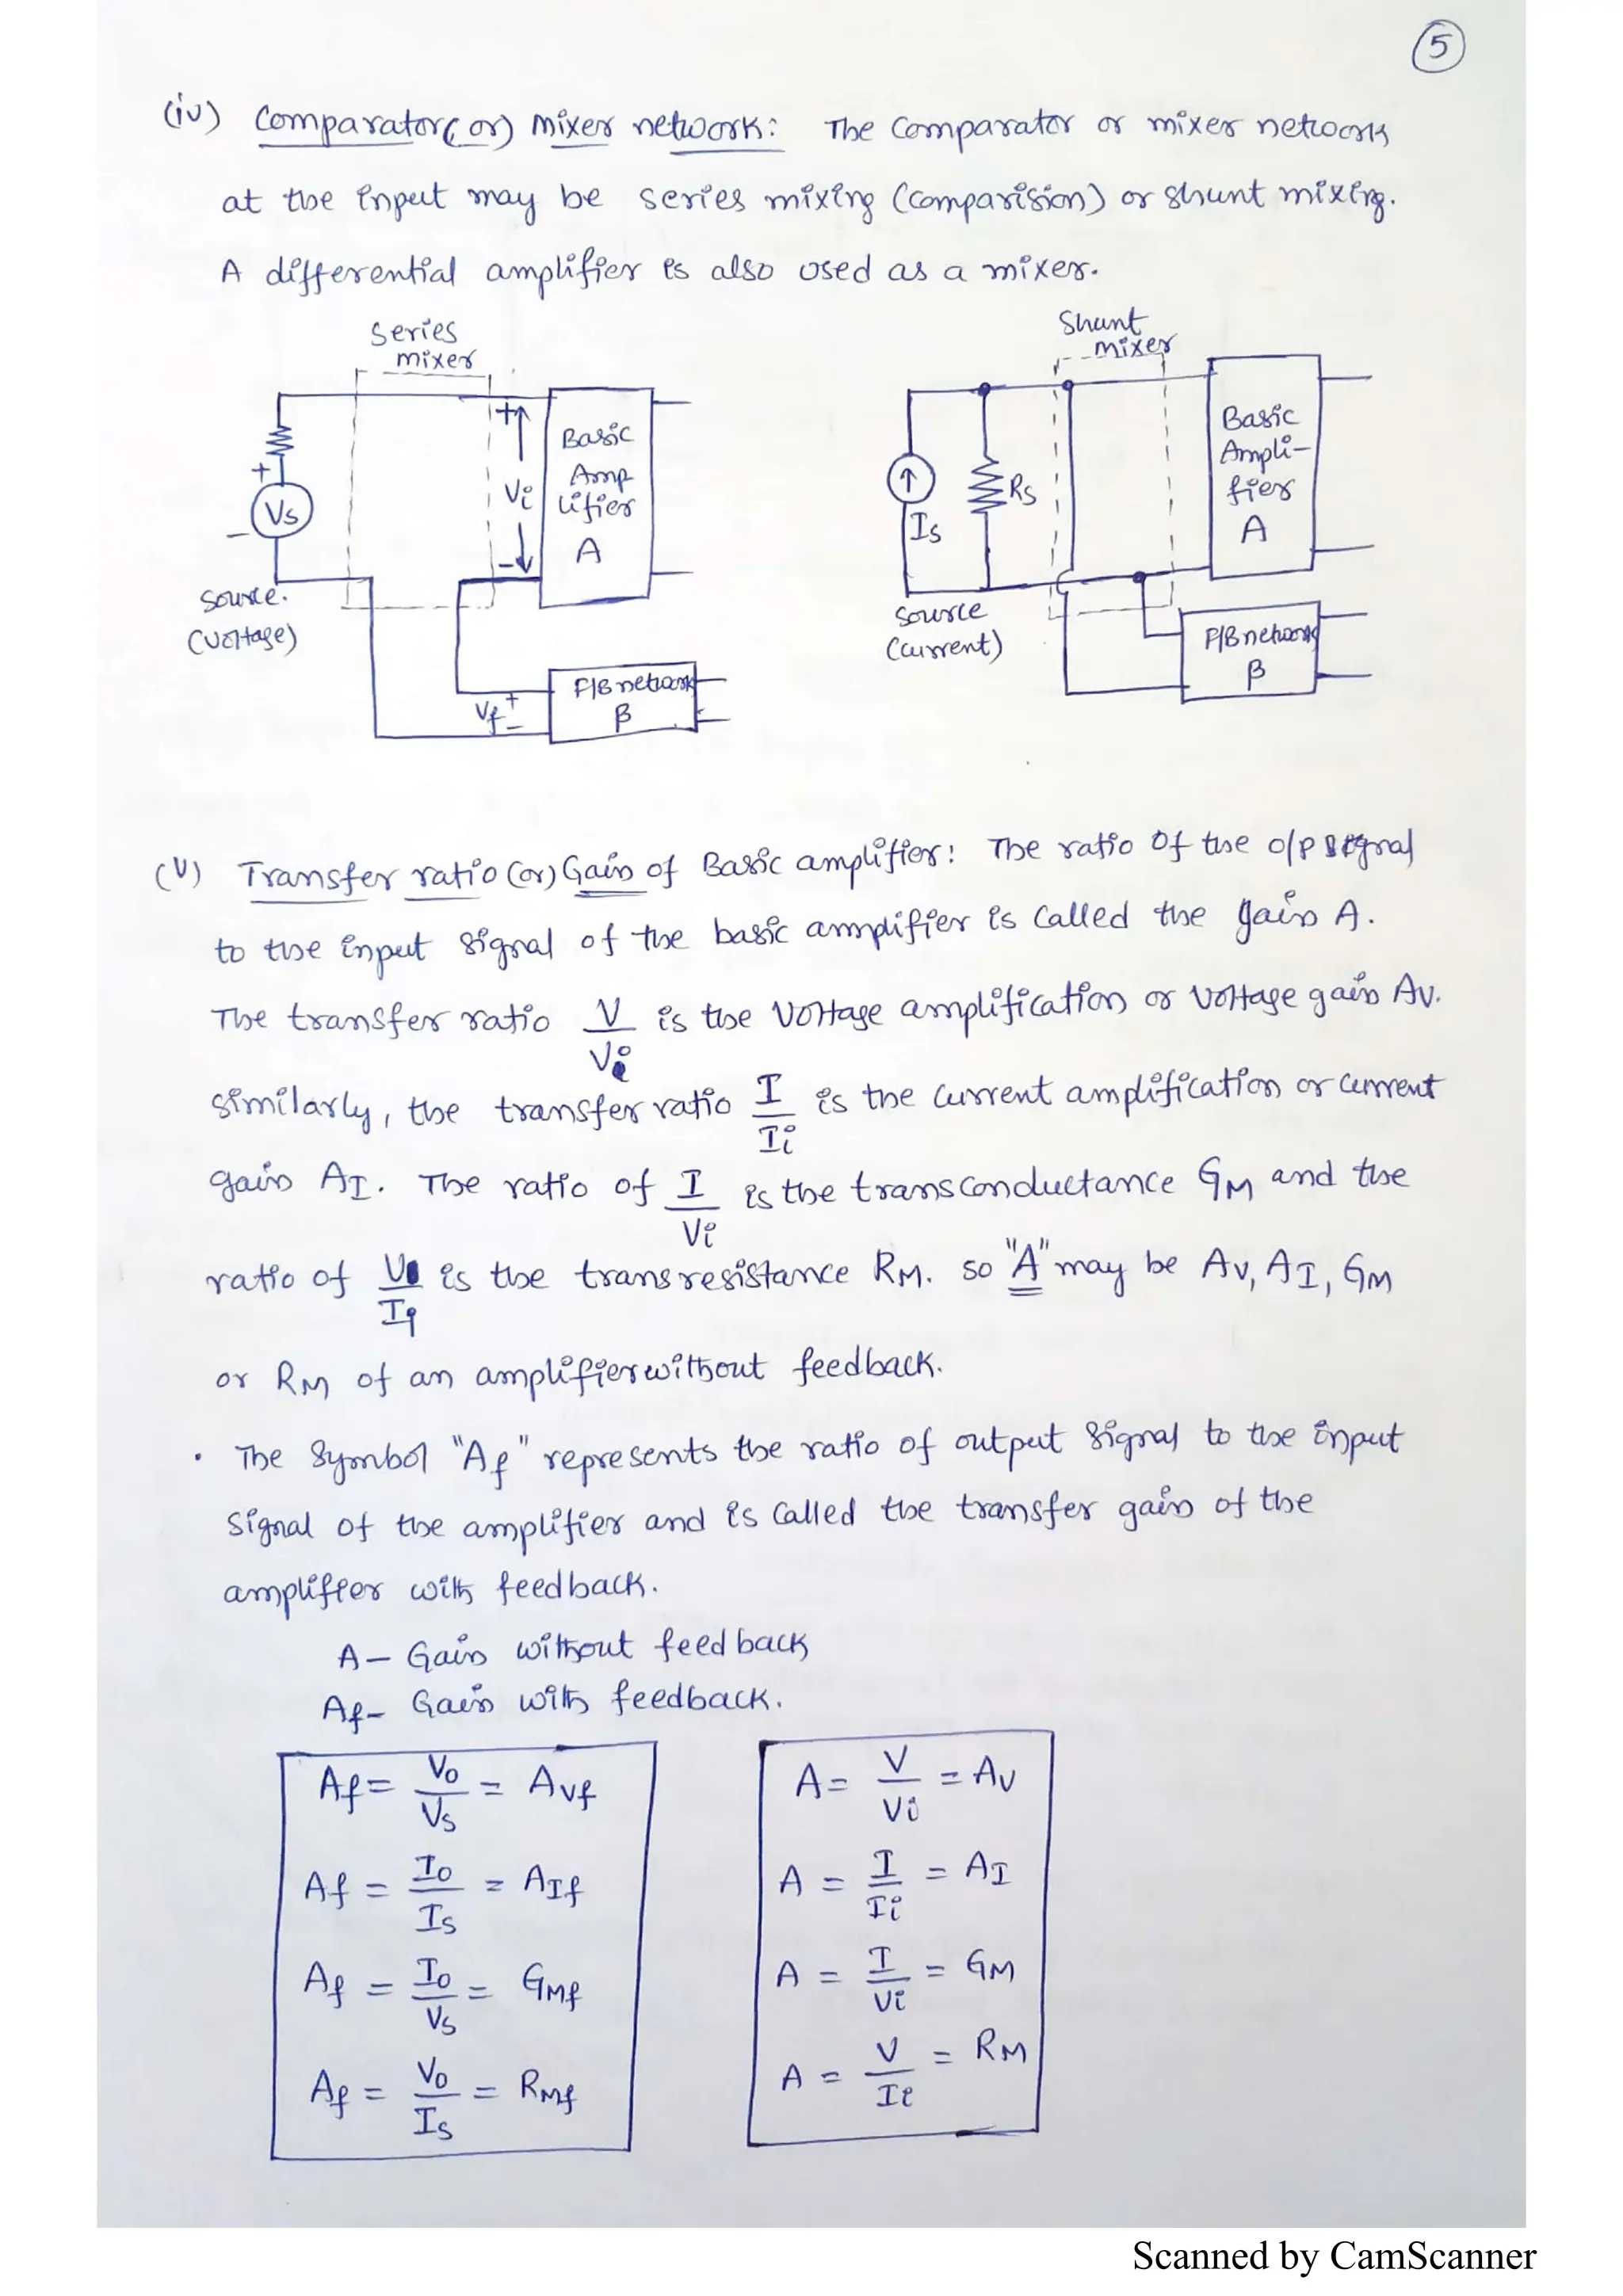 5
(iv) Comparator (or) mixer network: The Comparator or mixer network
at the input may be series mixing (comparision) or shunt mixing.
A differential amplifier is also used as a mixer.
Series
mixer
+
Vi
-
Basic
Amp
lifier
A
+
Vs
-
Source.
(voltage)
Vf +
-
F/B network
β
Shunt
mixer
Is
Rs
Source
(current)
Basic
Ampli-
fier
A
F/B network
β
(v) Transfer ratio (or) Gain of Basic amplifier: The ratio of the o/p signal
to the input signal of the basic amplifier is called the gain A.
The transfer ratio V/Vi is the voltage amplification or voltage gain Av.
similarly, the transfer ratio I/Ii is the current amplification or current
gain AI. The ratio of I/Vi is the transconductance GM and the
ratio of V/Ii is the transresistance RM. so "A" may be Av, AI, GM
or RM of an amplifier without feedback.
• The symbol "Af" represents the ratio of output signal to the input
signal of the amplifier and is called the transfer gain of the
amplifier with feedback.
A - Gain without feedback
Af - Gain with feedback.
Af = Vo/Vs = AVf
Af = Io/Is = AIf
Af = Io/Vs = GMf
Af = Vo/Is = RMf
A = V/Vi = AV
A = I/Ii = AI
A = I/Vi = GM
A = V/Ii = RM
Scanned by CamScanner